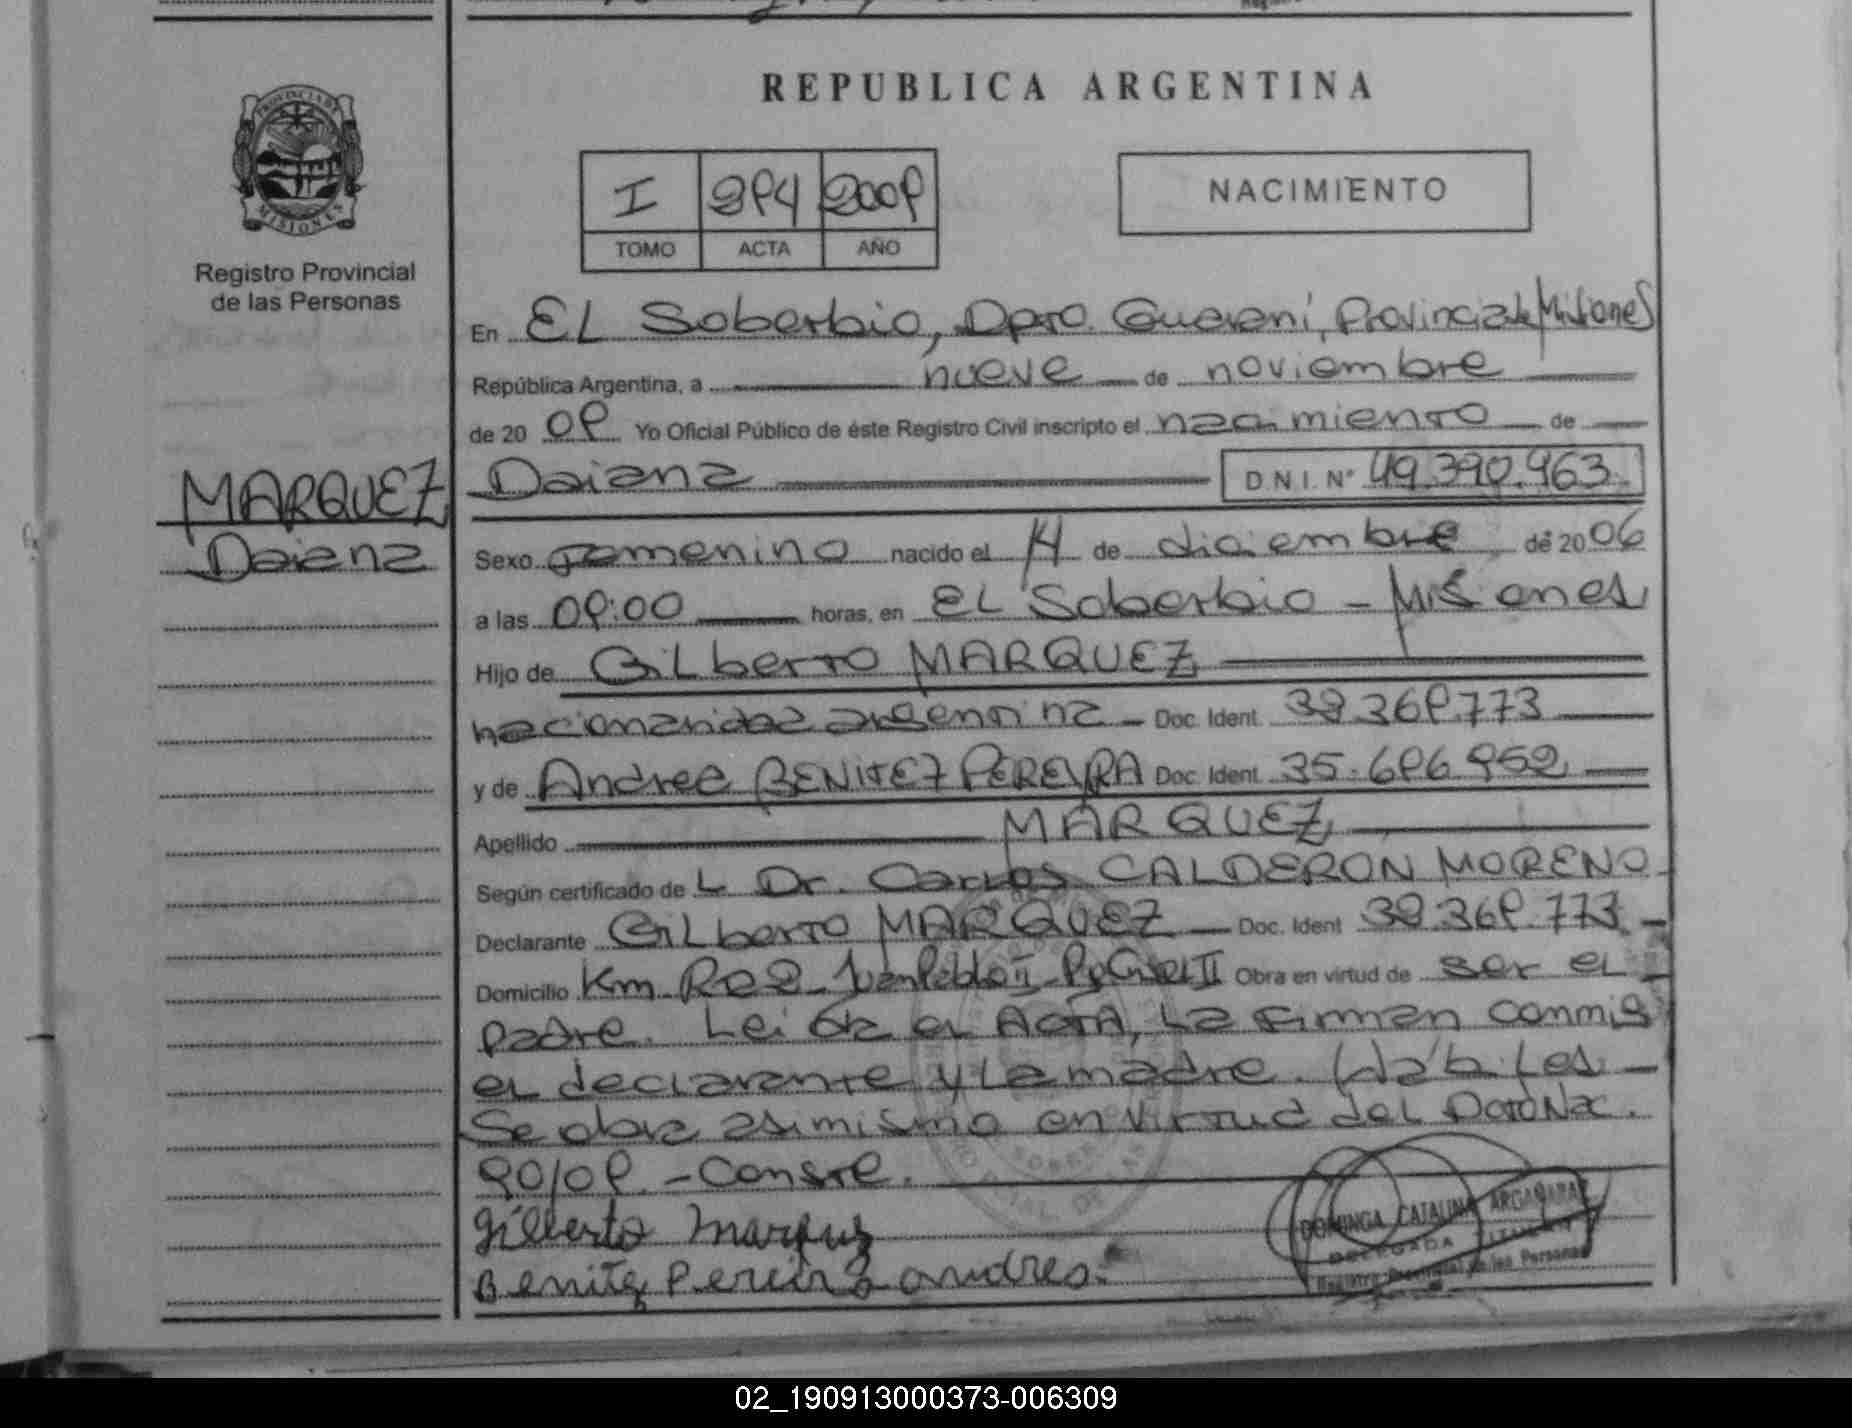 REPUBLICA ARGENTINA
PROVINCIA DE
MISIONES
Registro Provincial
de las Personas
I 294 2009
TOMO ACTA AÑO
NACIMIENTO
En EL Soberbio, Dpto. Guarani, Provincia de Misiones
República Argentina, a nueve de noviembre
de 20 09 Yo Oficial Público de éste Registro Civil inscripto el nacimiento de
MARQUEZ
Daiana
Daiana D.N.I. Nº 49.390.963.
Sexo femenino nacido el 14 de diciembre de 20 06
a las 09:00 horas, en EL Soberbio - Misiones
Hijo de Gilberto MARQUEZ
nacionalidad argentina - Doc. Ident. 38.369.773
y de Andrea BENITEZ PEREIRA Doc. Ident. 35.696.952
Apellido MARQUEZ
Según certificado de L Dr. Carlos CALDERON MORENO
Declarante Gilberto MARQUEZ - Doc. Ident 38.369.773 -
Domicilio Km Juan Pablo II Obra en virtud de ser el
padre. Lei el ACTA, La firman conmig
el declarante y La madre. Habiles -
Se obra asimismo en virtud del Dcto Nac.
90/09. - Conste.
Gilberto Marquez
Benitez Pereira andrea.
DOMINGA CATALINA ARGAÑARAZ
DELEGADA TITULAR
Registro Provincial de las Personas
02_190913000373-006309